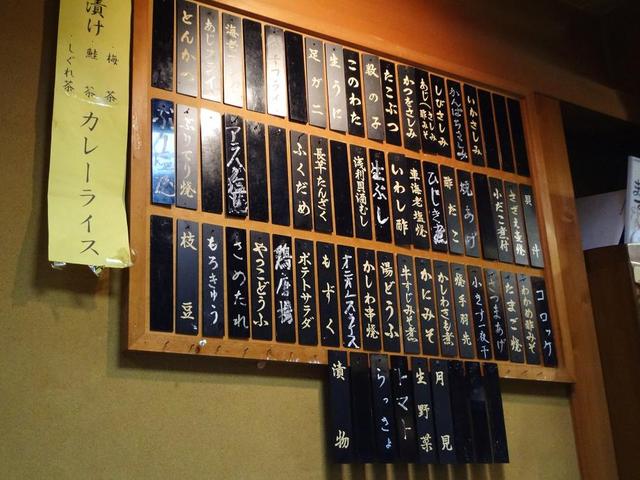 いかさしみ
かんぱちさしみ
しびさしみ
あじさしみ
かつをさしみ
たこぶつ
数の子
このわた
生うに
足ガニ
海老フライ
あじフライ
とんかつ
貝汁
さざえ壺焼
小だこ煮付
焼あげ
酢だこ
ひじき煮
車海老塩焼
いわし酢
生ぶし
浅利貝酒むし
長芋たんざく
ふくだめ
ぶりてり焼
コロッケ
わかめ酢みそ
たまご焼
さつまあげ
小きす一夜干
焼手羽先
かしわきも煮
かにみそ
牛すじみそ煮
湯どうふ
かしわ串焼
オニオンスライス
もずく
ポテトサラダ
鶏唐揚
やっこどうふ
さめたれ
もろきゅう
枝豆
月見
生野菜
トマト
らっきょ
漬物
漬け
梅茶
鮭茶
しぐれ茶
カレーライス